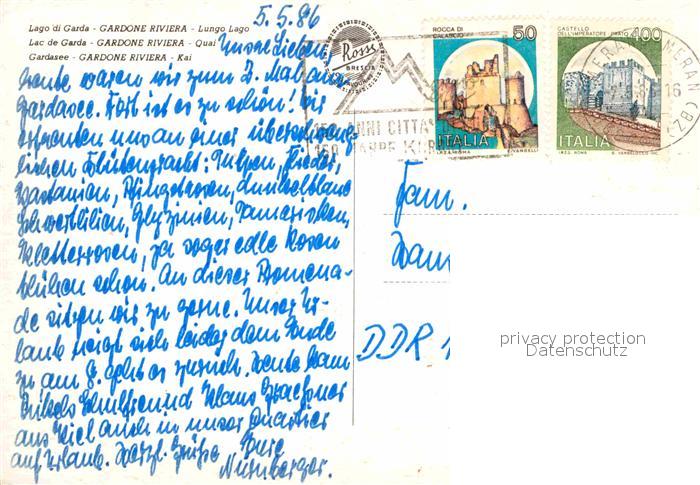 5.5.86
Lago di Garda - GARDONE RIVIERA - Lungo Lago
Lac de Garda - GARDONE RIVIERA - Quai
Gardasee - GARDONE RIVIERA - Kai
Unsre Lieben,
heute waren wir zum 2. Mal am
Gardasee. Fort ist es zu schön! Wir
erfreuten uns an einer überschweng-
lichen Blütenpracht: Tulpen, Flieder,
Kastanien, Pfingstrosen,
Schwertlilien, Glyzinien, Tamarisken,
Kletterrosen, ja sogar edle Rosen
blühen schon. An dieser Promena-
de sitzen wir zu gerne. Unser Ur-
laub neigt sich leider dem Ende
zu am 8. geht es zurück. Heute kam
Schulfreund Klaus
aus Kiel auch in unser Quartier
auf Urlaub. Herzl. Grüße Eure
Nürnberger.
Rossi
BRESCIA
ROCCA DI
CALASCIO
50
ITALIA
CASTELLO
DELL'IMPERATORE PRATO
400
ITALIA
MERAN (BZ)
16
150 ANNI CITTA'
150 JAHRE KUR
Fam.
DDR
privacy protection
Datenschutz